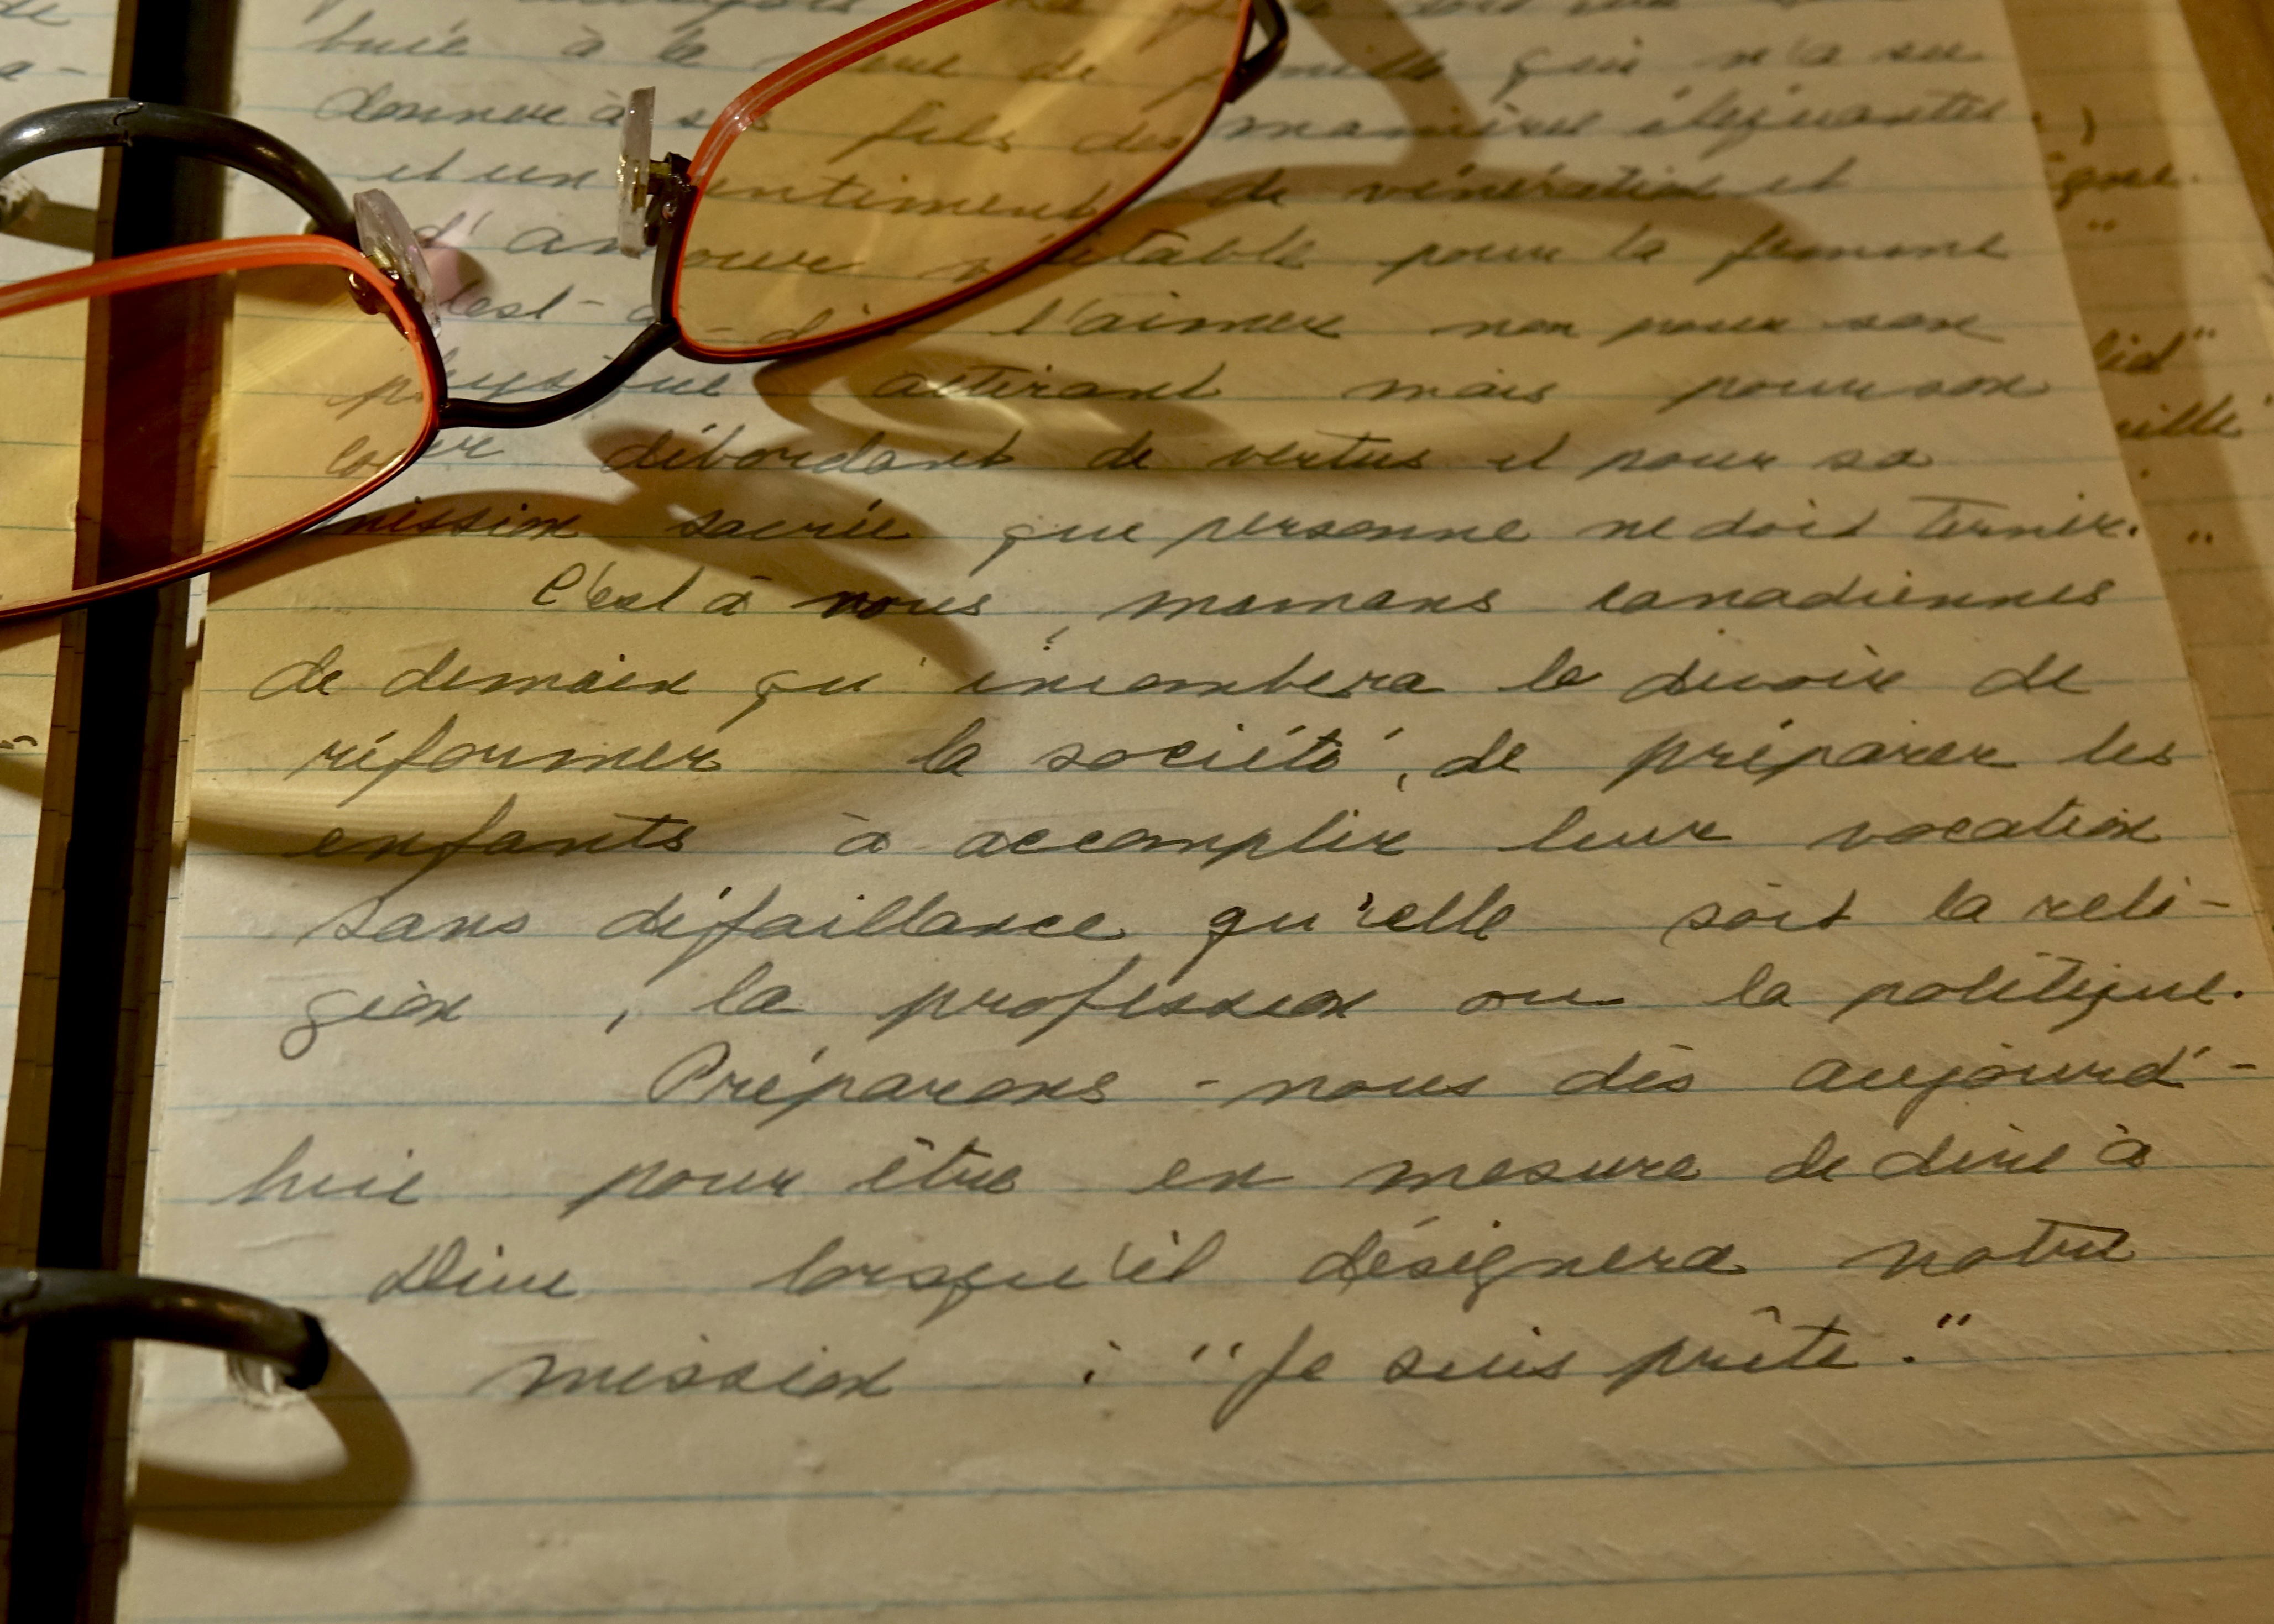 buée à la de famille qui n'a su
donner à ses fils des manières élégantes
et un sentiment de vénération et
d'amour véritable pour la femme
c'est-à-dire l'aimer non pour son
physique attirant mais pour son
coeur débordant de vertus et pour sa
mission sacrée que personne ne doit ternir.
C'est à nous, mamans canadiennes
de demain qu'incombera le devoir de
réformer la société, de préparer les
enfants à accomplir leur vocation
sans défaillance qu'elle soit la reli-
gion, la profession ou la politique.
Préparons-nous dès aujourd'-
hui pour être en mesure de dire à
Dieu lorsqu'il désignera notre
mission : "Je suis prête."